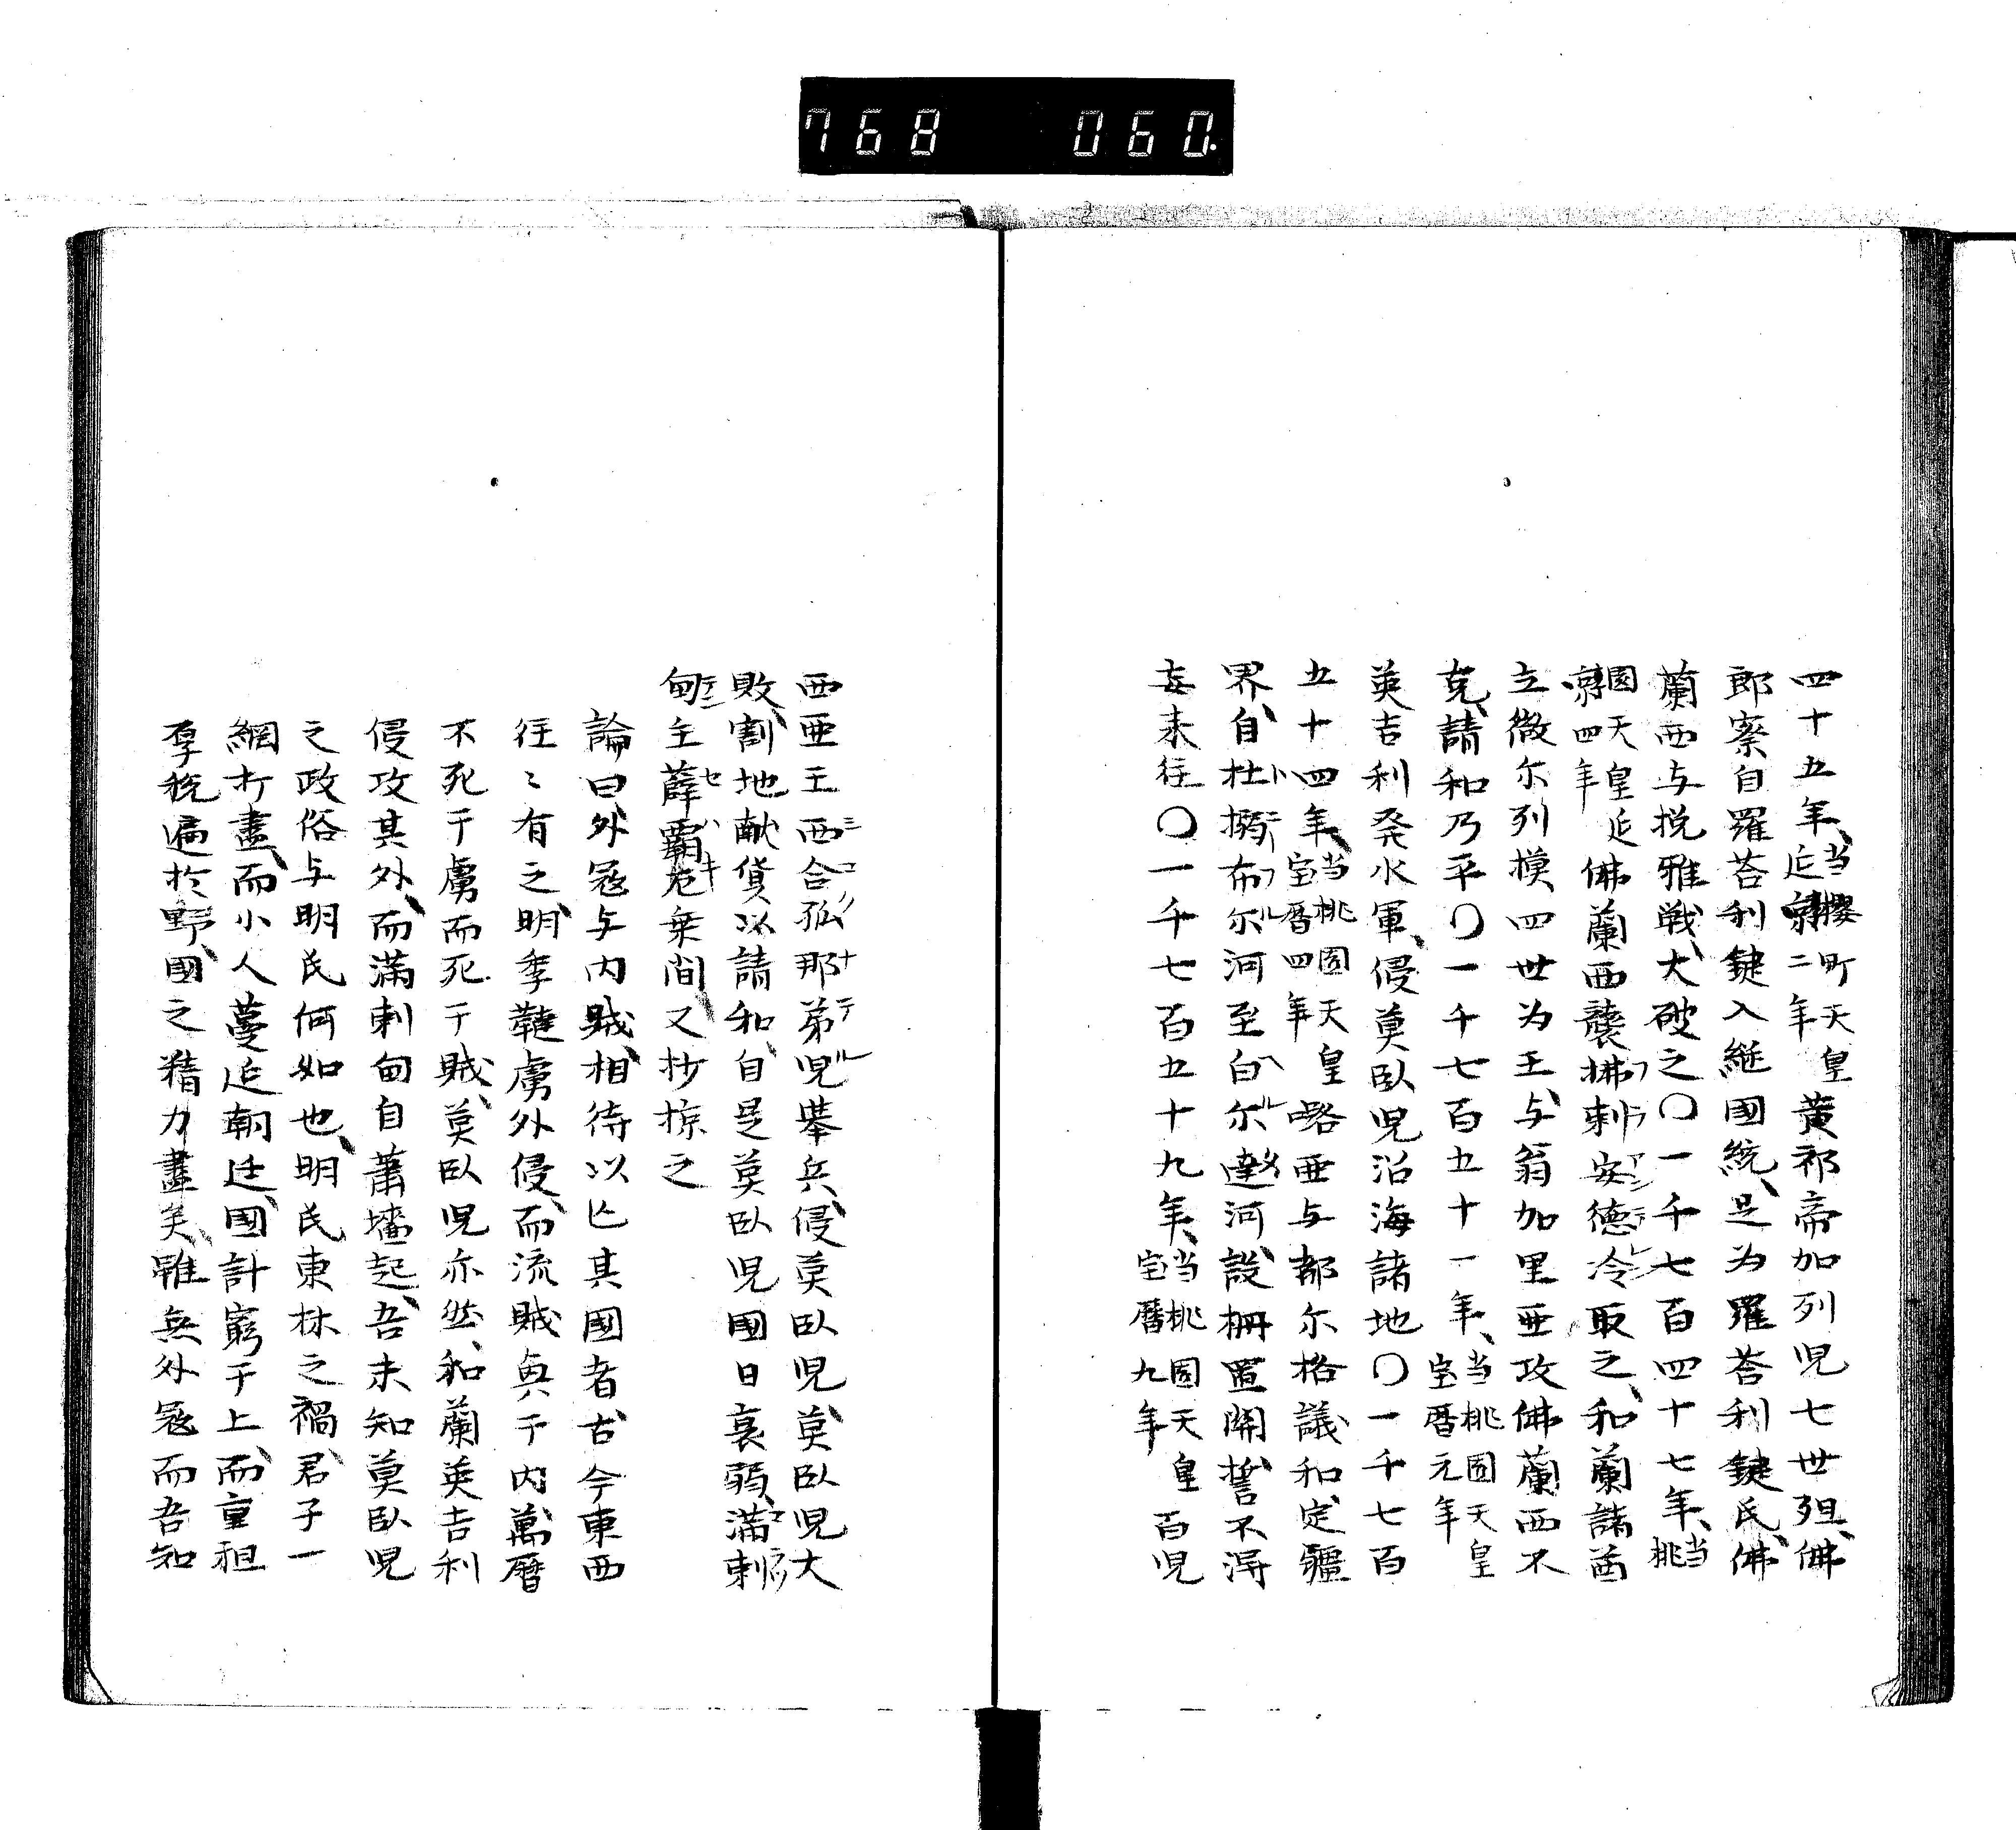 768 060
四十五年、当櫻町天皇延享二年黄祁帝加列児七世殂、佛
郎察自羅荅利鍵入継國統、是为羅荅利鍵氏、佛
蘭西与挩雅戦、大破之〇一千七百四十七年、当桃
園天皇延享四年佛蘭西襲拂剌安德冷取之、和蘭諸酋
立微尔列模四世为王、与翁加里亜攻佛蘭西不
克、請和乃平〇一千七百五十一年、当桃園天皇宝暦元年
英吉利発水軍、侵莫臥児沿海諸地〇一千七百
五十四年、当桃園天皇宝暦四年略亜与都尔格議和、定疆
界、自杜撈布尔河至白尔達河、設柵置関、誓不得
妄来往〇一千七百五十九年、当桃園天皇宝暦九年百児
西亜王西合孤那弟児挙兵、侵莫臥児、莫臥児大
敗、割地献貨以請和、自是莫臥児國日衰弱、満剌
甸主薛覇危乗間又抄掠之
論曰、外冦与内賊、相待以亡其國者、古今東西
往〻有之、明季韃虜外侵、而流賊興于内、萬暦
不死于虜而死于賊、莫臥児亦然、和蘭英吉利
侵攻其外、而満剌甸自蕭墻起、吾未知莫臥児
之政俗与明氏何如也、明氏東林之禍、君子一
網打盡、而小人蔓延朝廷、國計窮于上、而重租
厚税遍於野、國之精力盡矣、雖無外冦而吾知